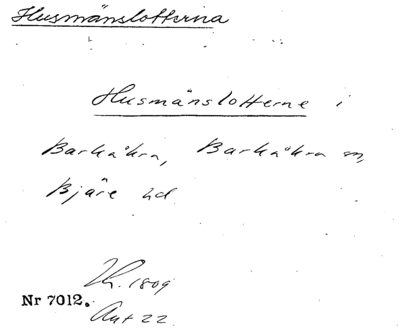 Husmänslotterna
Husmänslotterne i
Barkåkra, Barkåkra sn,
Bjäre hd
Lh. 1809
Nr 7012.
Aut 22